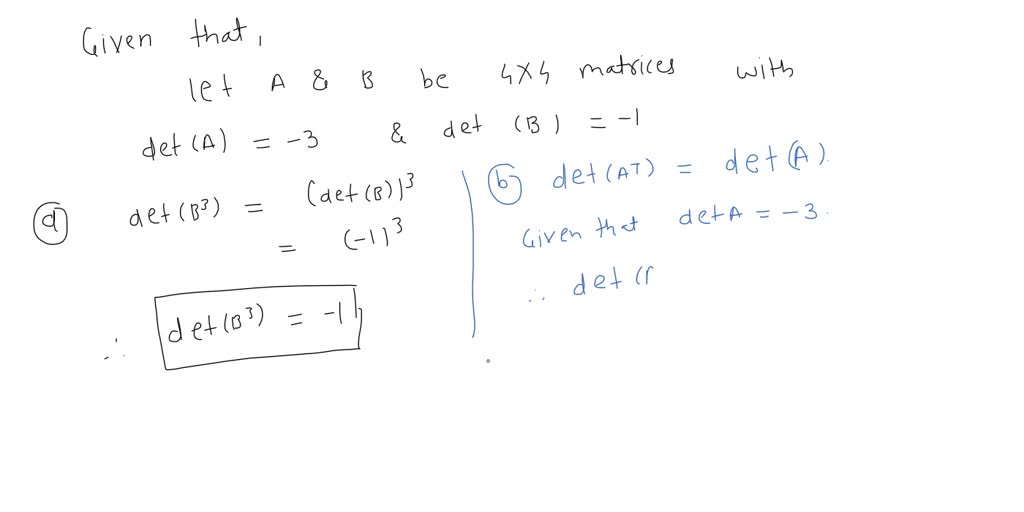 Given that,
let A & B be 4×4 matrices with
det(A) = -3 & det (B) = -1
(a) det(B³) = (det(B))³
= (-1)³
∴ det(B³) = -1
(b) det(AT) = det(A).
Given that det A = -3.
∴ det (